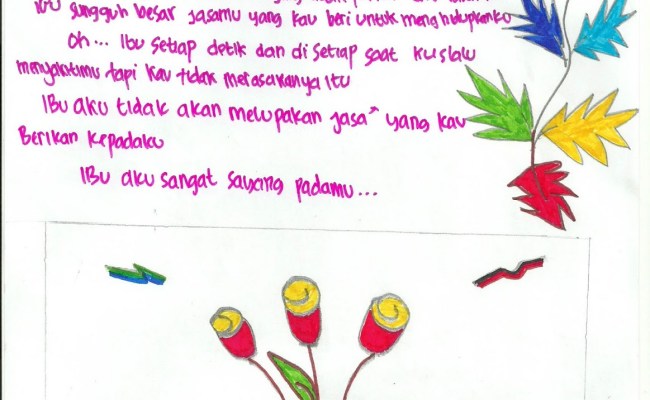 Ibu sungguh besar jasamu yang kau beri untuk menghidupkanku
Oh... Ibu setiap detik dan di setiap saat kuslalu
menyakitimu tapi kau tidak merasakanya itu
Ibu aku tidak akan melupakan jasa" yang kau
Berikan kepadaku
Ibu aku sangat sayang padamu...